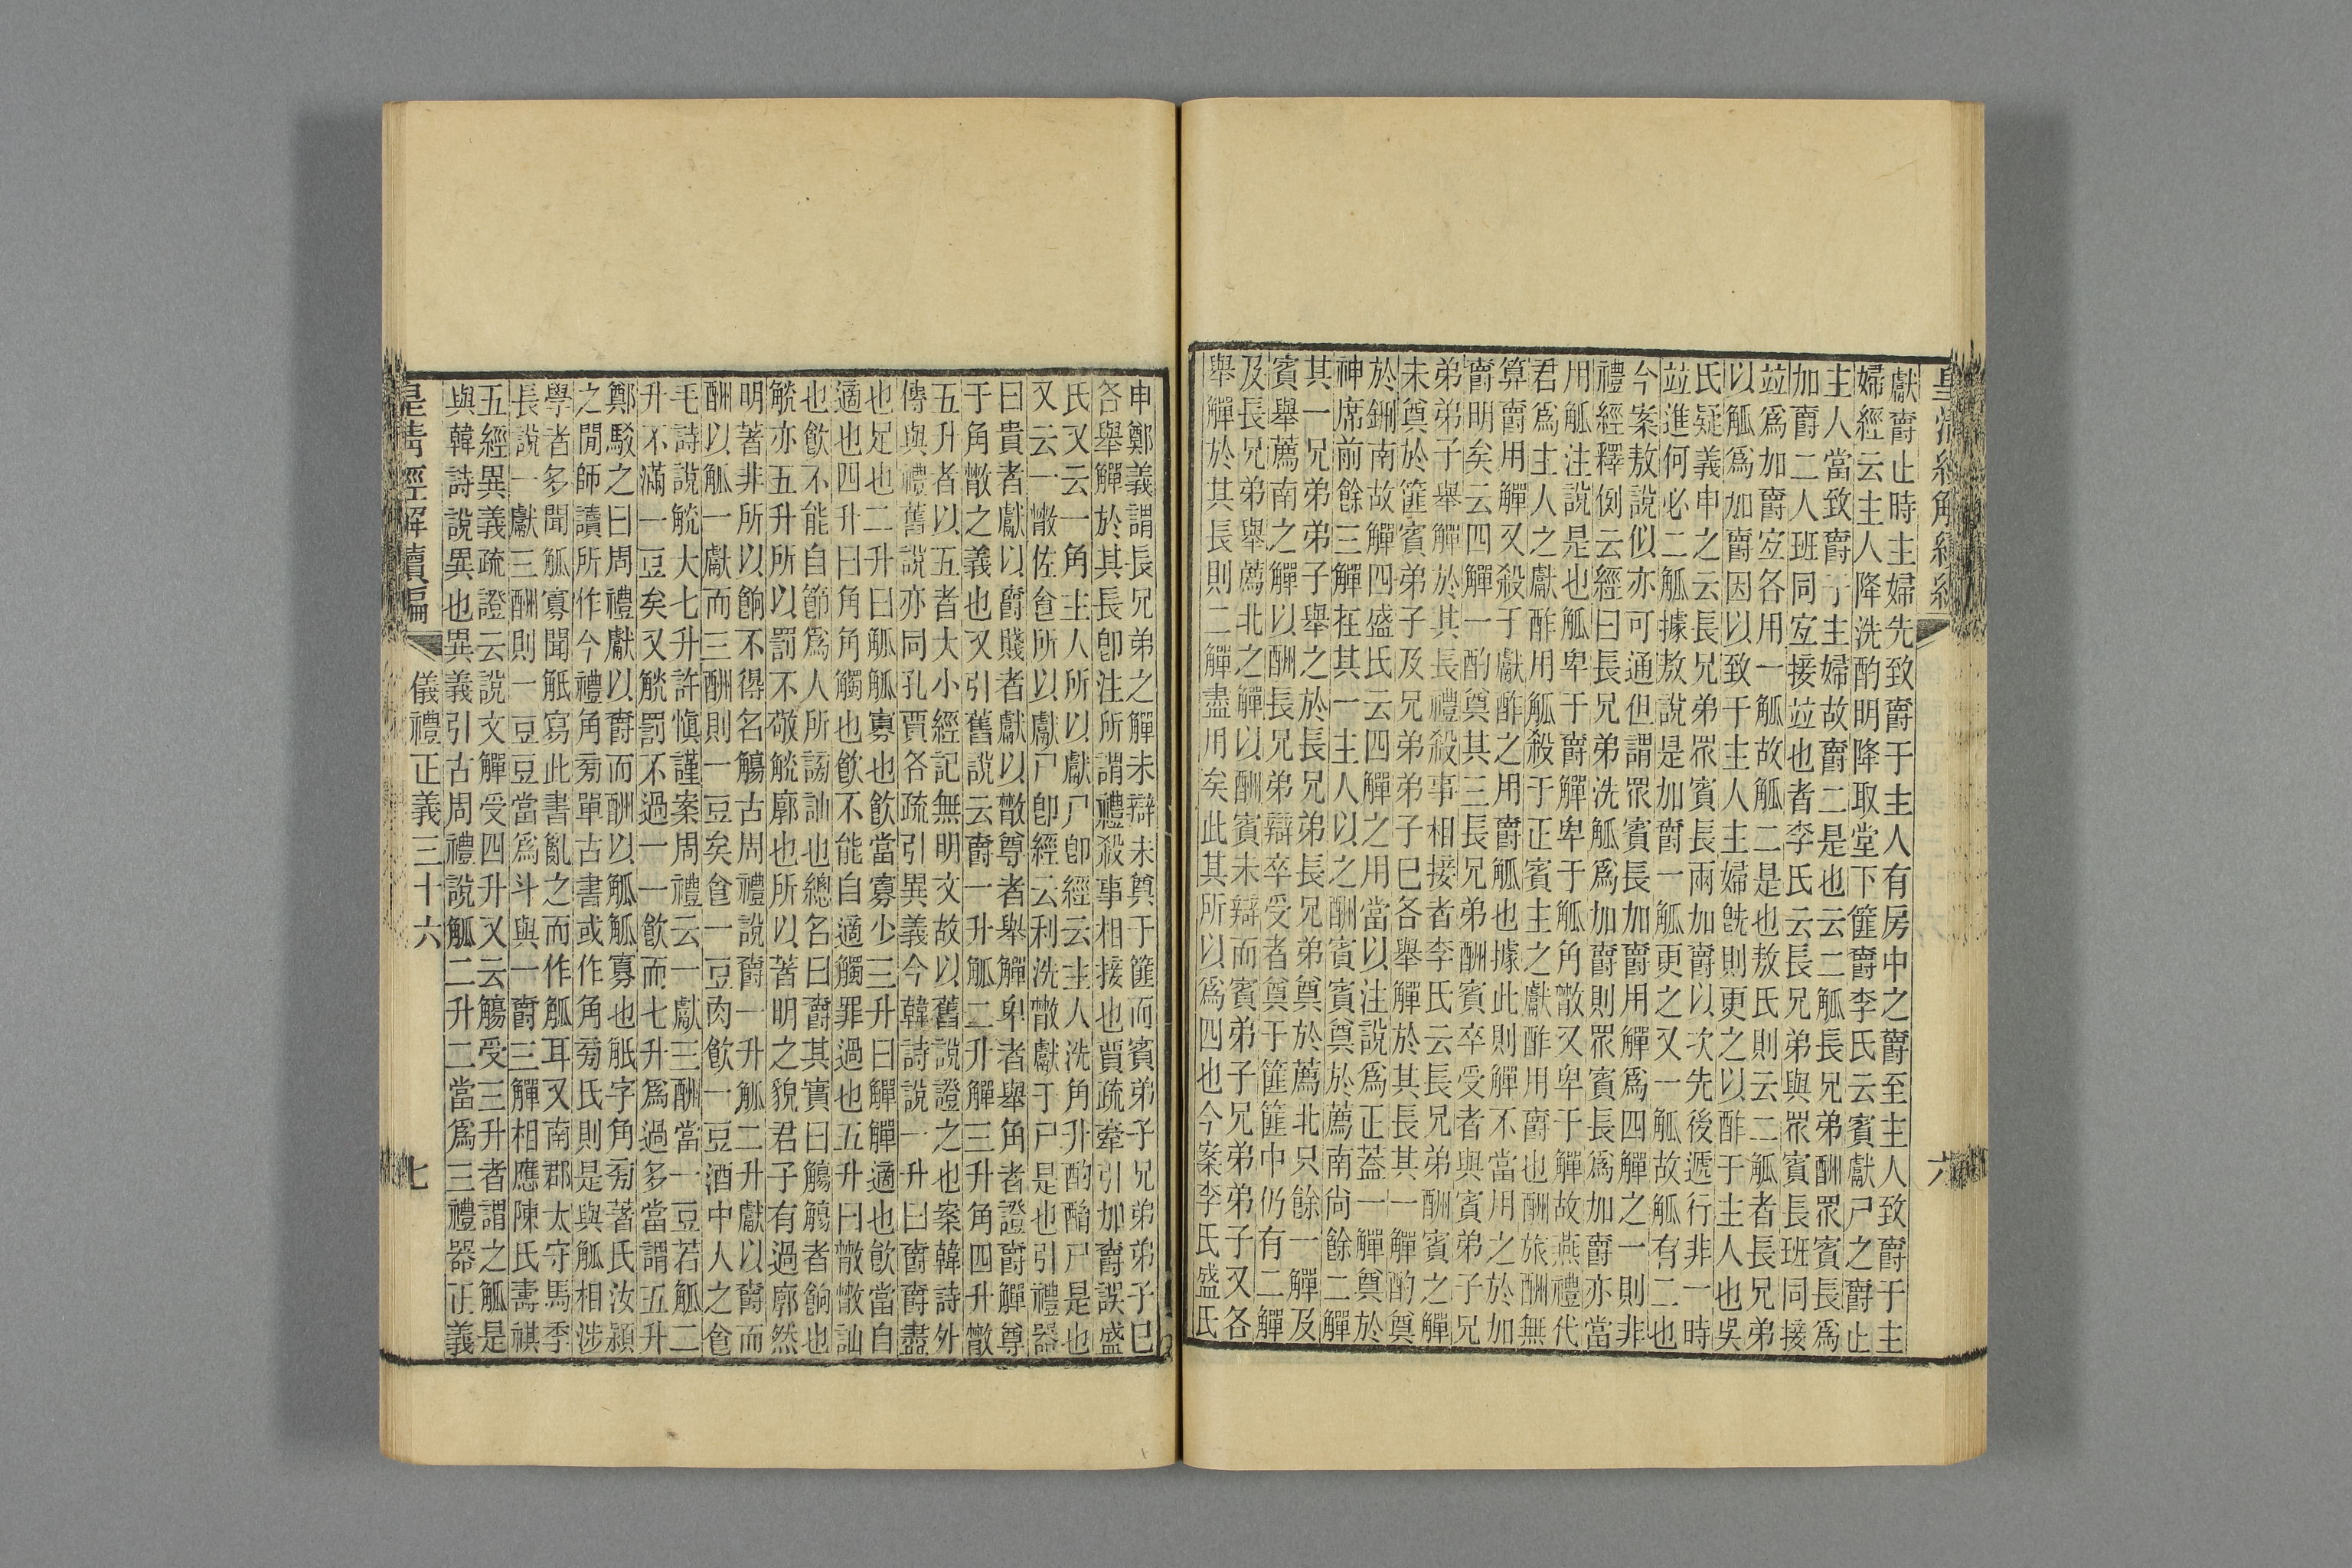 獻爵止時主婦先致爵于主人有房中之爵至主人致爵于主
婦經云主人降洗酌明降取堂下篚爵李氏云賓獻尸之爵止
主人當致爵于主婦故爵二是也云二觚長兄弟酬眾賓長爲
加爵二人班同宐接竝也者李氏云長兄弟與眾賓長班同接
竝爲加爵宐各用一觚故觚二是也敖氏則云二觚者長兄弟
以觚爲加爵因以致于主人主婦旣則更之以酢于主人也吳
氏疑義申之云長兄弟眾賓長兩加爵以次先後遞行非一時
竝進何必二觚據敖說是加爵一觚更之又一觚故觚有二也
今案敖說似亦可通但謂眾賓長加爵用觶爲四觶之一則非
禮經釋例云經曰長兄弟洗觚爲加爵則眾賓長爲加爵亦當
用觚注說是也觚卑于爵觶卑于觚角散又卑于觶故燕禮代
君爲主人之獻酢用觚殺于正賓主之獻酢用爵也酬旅酬無
算爵用觶又殺于獻酢之用爵觚也據此則觶不當用之於加
爵明矣云四觶一酌奠其三長兄弟酬賓卒受者與賓弟子兄
弟弟子舉觶於其長禮殺事相接者李氏云長兄弟酬賓之觶
未奠於篚賓弟子及兄弟弟子已各舉觶於其長其一觶酌奠
於鉶南故觶四盛氏云四觶之用當以注說爲正蓋一觶奠於
神席前餘三觶在其一主人以之酬賓賓奠於薦南尚餘二觶
其一兄弟弟子舉之於長兄弟長兄弟奠於薦北只餘一觶及
賓舉薦南之觶以酬長兄弟辯卒受者奠于篚篚中仍有二觶
及長兄弟舉薦北之觶以酬賓未辯而賓弟子兄弟弟子又各
舉觶於其長則二觶盡用矣此其所以爲四也今案李氏盛氏
申鄭義謂長兄弟之觶未辯未奠于篚而賓弟子兄弟弟子已
各舉觶於其長卽注所謂禮殺事相接也賈疏牽引加爵誤盛
氏又云一角主人所以獻尸卽經云主人洗角升酌酳尸是也
又云一散佐食所以獻尸卽經云利洗散獻于尸是也引禮器
曰貴者獻以爵賤者獻以散尊者舉觶卑者舉角者證爵觶尊
于角散之義也又引舊說云爵一升觚二升觶三升角四升散
五升者以五者大小經記無明文故以舊說證之也案韓詩外
傳與禮舊說亦同孔賈各疏引異義今韓詩說一升曰爵爵盡
也足也二升曰觚觚寡也飲當寡少三升曰觶觶適也飲當自
適也四升曰角角觸也飲不能自適觸罪過也五升曰散散訕
也飲不能自節爲人所謗訕也總名曰爵其實曰觴觴者餉也
觥亦五升所以罰不敬觥廓也所以著明之貌君子有過廓然
明著非所以餉不得名觴古周禮說爵一升觚二升獻以爵而
酬以觚一獻而三酬則一豆矣食一豆肉飲一豆酒中人之食
毛詩說觥大七升許愼謹案周禮云一獻三酬當一豆若觚二
升不滿一豆矣又觥罰不過一一飲而七升爲過多當謂五升
鄭駁之曰周禮獻以爵而酬以觚觚寡也觗字角菊著氏汝潁
之閒師讀所作今禮角菊單古書或作角菊氏則是與觚相涉
學者多聞觚寡聞觗寫此書亂之而作觚耳又南郡太守馬季
長說一獻三酬則一豆豆當爲斗與一爵三觶相應陳氏壽祺
五經異義疏證云說文觶受四升又云觴受三升者謂之觚是
與韓詩說異也異義引古周禮說觚二升二當爲三禮器正義
皇清經解續編 儀禮正義三十六 七